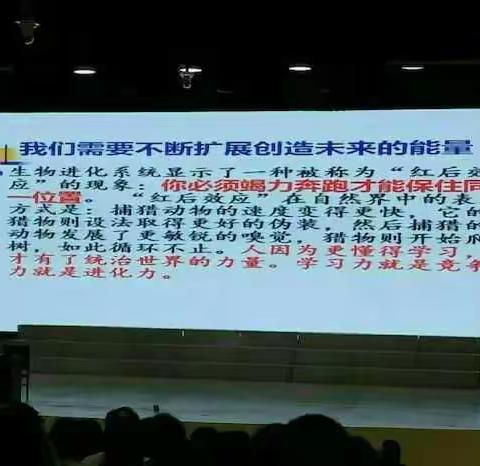 我们需要不断扩展创造未来的能量
生物进化系统显示了一种被称为“红后效
应”的现象：你必须竭力奔跑才能保住同
一位置。 “红后效应”在自然界中的表
方式是：捕猎动物的速度变得更快，它的
猎物则设法取得更好的伪装，然后捕猎的
动物发展了更敏锐的嗅觉，猎物则开始爬
树，如此循环不止。人因为更懂得学习，
才有了统治世界的力量。学习力就是竞争
力就是进化力。